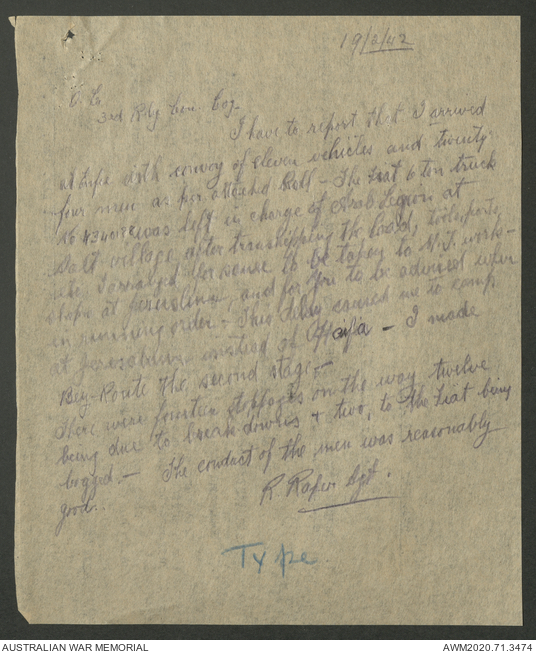 19/2/42
O C
3rd Rly Con. Coy.
I have to report that I arrived
with convoy of eleven vehicles and twenty
four men as per attached Roll - The Fiat 6 ton truck
No was left in charge of Arab Legion at
Salt village after transhipping the load, tools, parts,
etc. I arranged for same to be taken to M.T. work-
shops at Jerusalem, and for you to be advised when
in running order - This delay caused me to camp
at Jerusalem instead of Haifa - I made
the second stage -
There were fourteen stoppages on the way twelve
being due to break downs & two, to the Fiat being
bogged. - The conduct of the men was reasonably
good.
R Sgt.
Type
AUSTRALIAN WAR MEMORIAL
AWM2020.71.3474